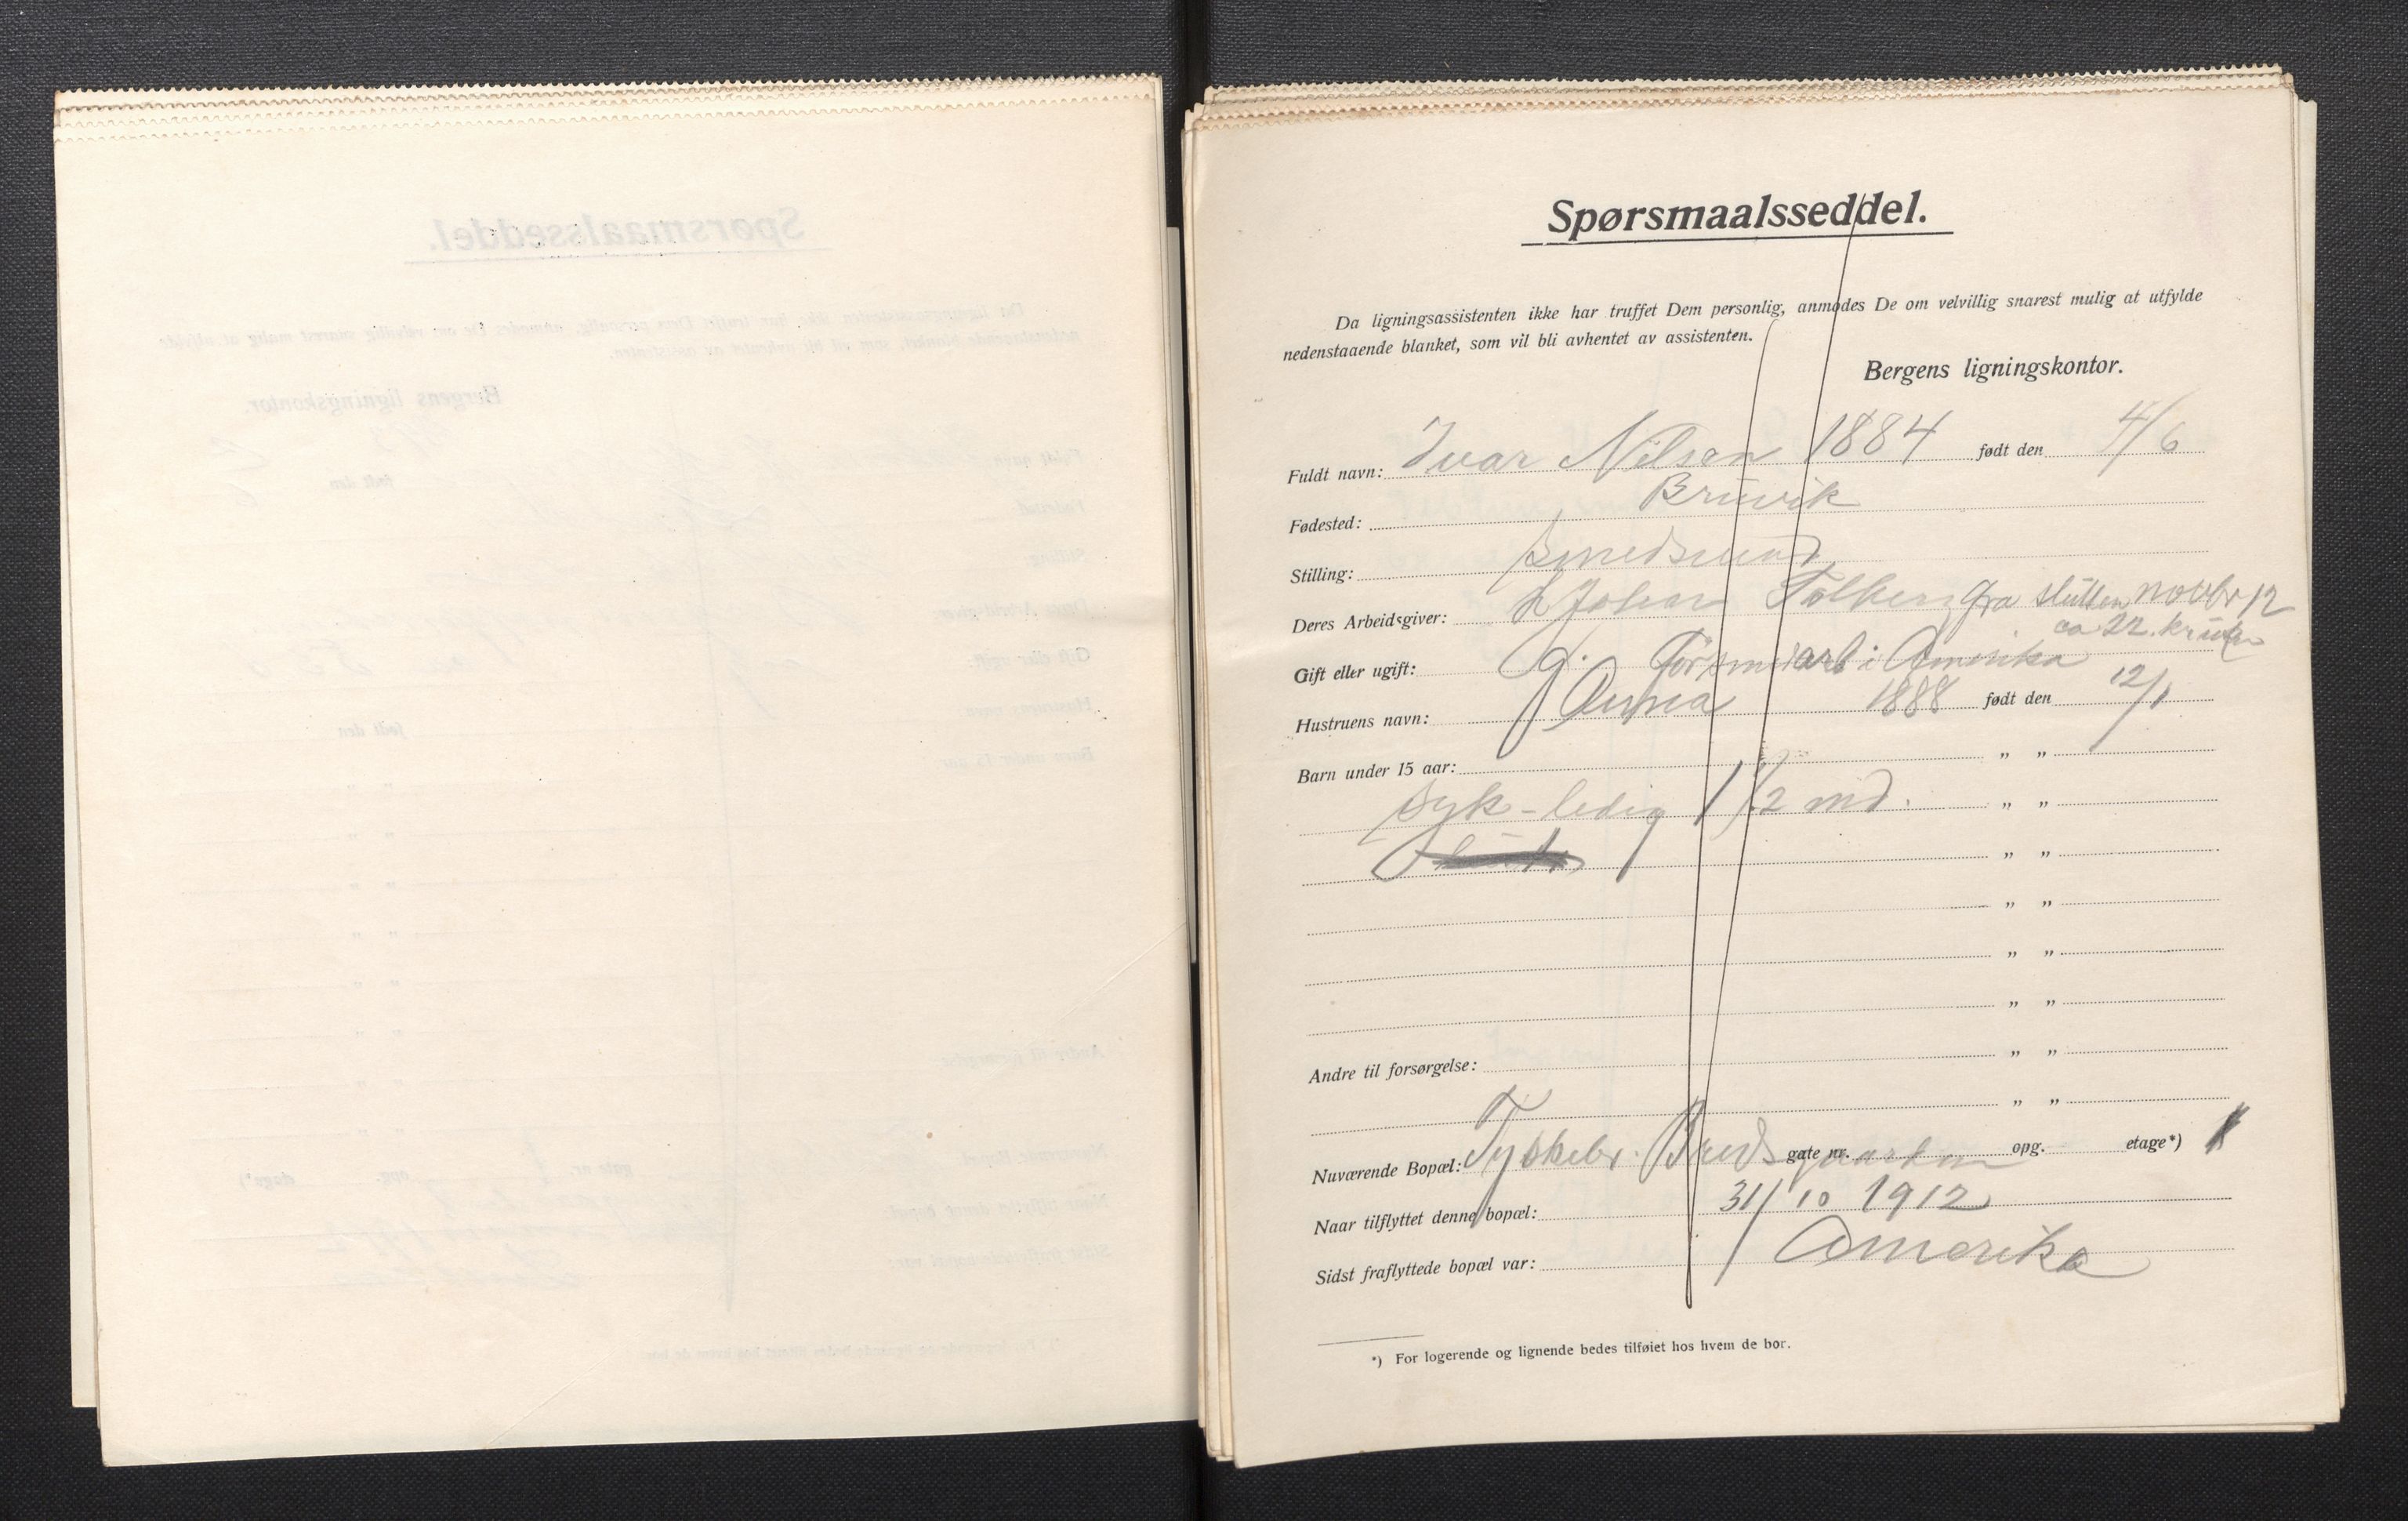 Spørsmaalsseddel.
Da ligningsassistenten ikke har truffet Dem personlig, anmodes De om velvillig snarest mulig at utfylde
nedenstaaende blanket, som vil bli avhentet av assistenten.
Bergens ligningskontor.
Fuldt navn: Ivar Nilsen 1884 født den 4/6
Fødested: Bruvik
Stilling: Smedsvend
Deres Arbeidsgiver: Johan fra slutten novbr 12
ca 22 kr uken
Gift eller ugift: g. Før smedarb i Amerika
Hustruens navn: Anna 1888 født den 12/1
Barn under 15 aar: „ „
syk - ledig 1 1/2 md. „ „
„ „
„ „
„ „
„ „
Andre til forsørgelse: „ „
„ „
Nuværende Bopæl: Tyskebr. Bredsgaarden gate nr. opg. etage*)
Naar tilflyttet denne bopæl: 31/10 1912
Sidst fraflyttede bopæl var: Amerika
*) For logerende og lignende bedes tilføiet hos hvem de bor.